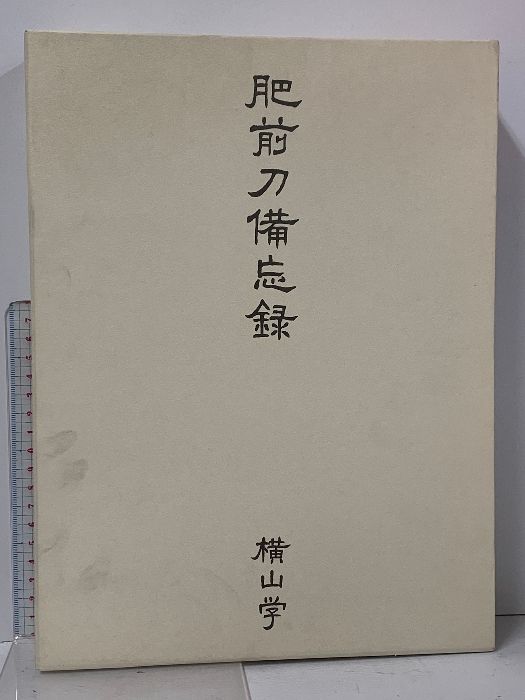 肥前刀備忘録
横山学